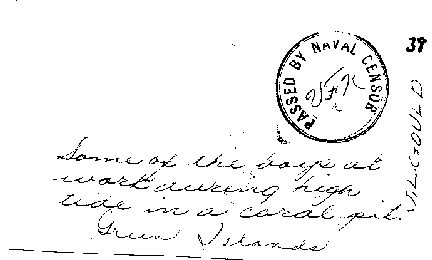 39
PASSED BY NAVAL CENSOR
J.L. GOULD
Some of the boys at
work during high
tide in a coral pit.
Green Islands